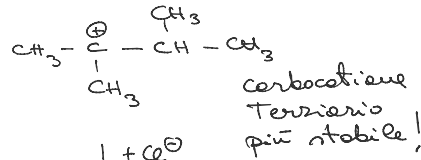 CH3
CH3 - C⊕ - CH - CH3
CH3
carbocatione
Terziario
più stabile!
| + Cl⊖